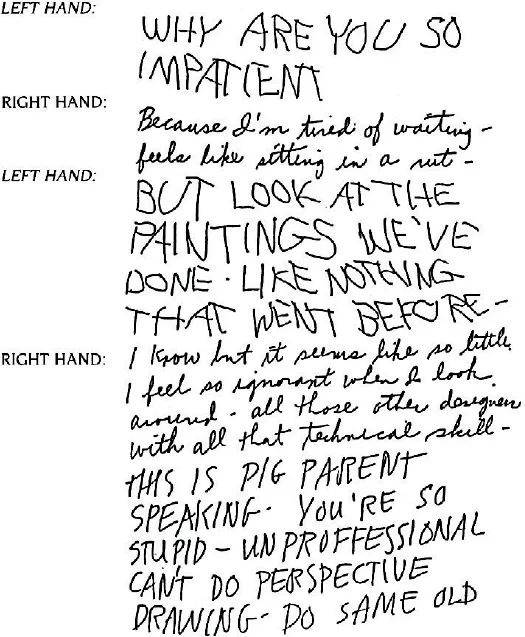 LEFT HAND:
WHY ARE YOU SO
IMPATIENT
RIGHT HAND:
Because I'm tired of waiting -
feels like sitting in a rut -
LEFT HAND:
BUT LOOK AT THE
PAINTINGS WE'VE
DONE. LIKE NOTHING
THAT WENT BEFORE -
RIGHT HAND:
I know but it seems like so little.
I feel so ignorant when I look
around - all those other designers
with all that technical skill -
THIS IS PIG PARENT
SPEAKING. YOU'RE SO
STUPID - UNPROFFESSIONAL
CAN'T DO PERSPECTIVE
DRAWING - DO SAME OLD